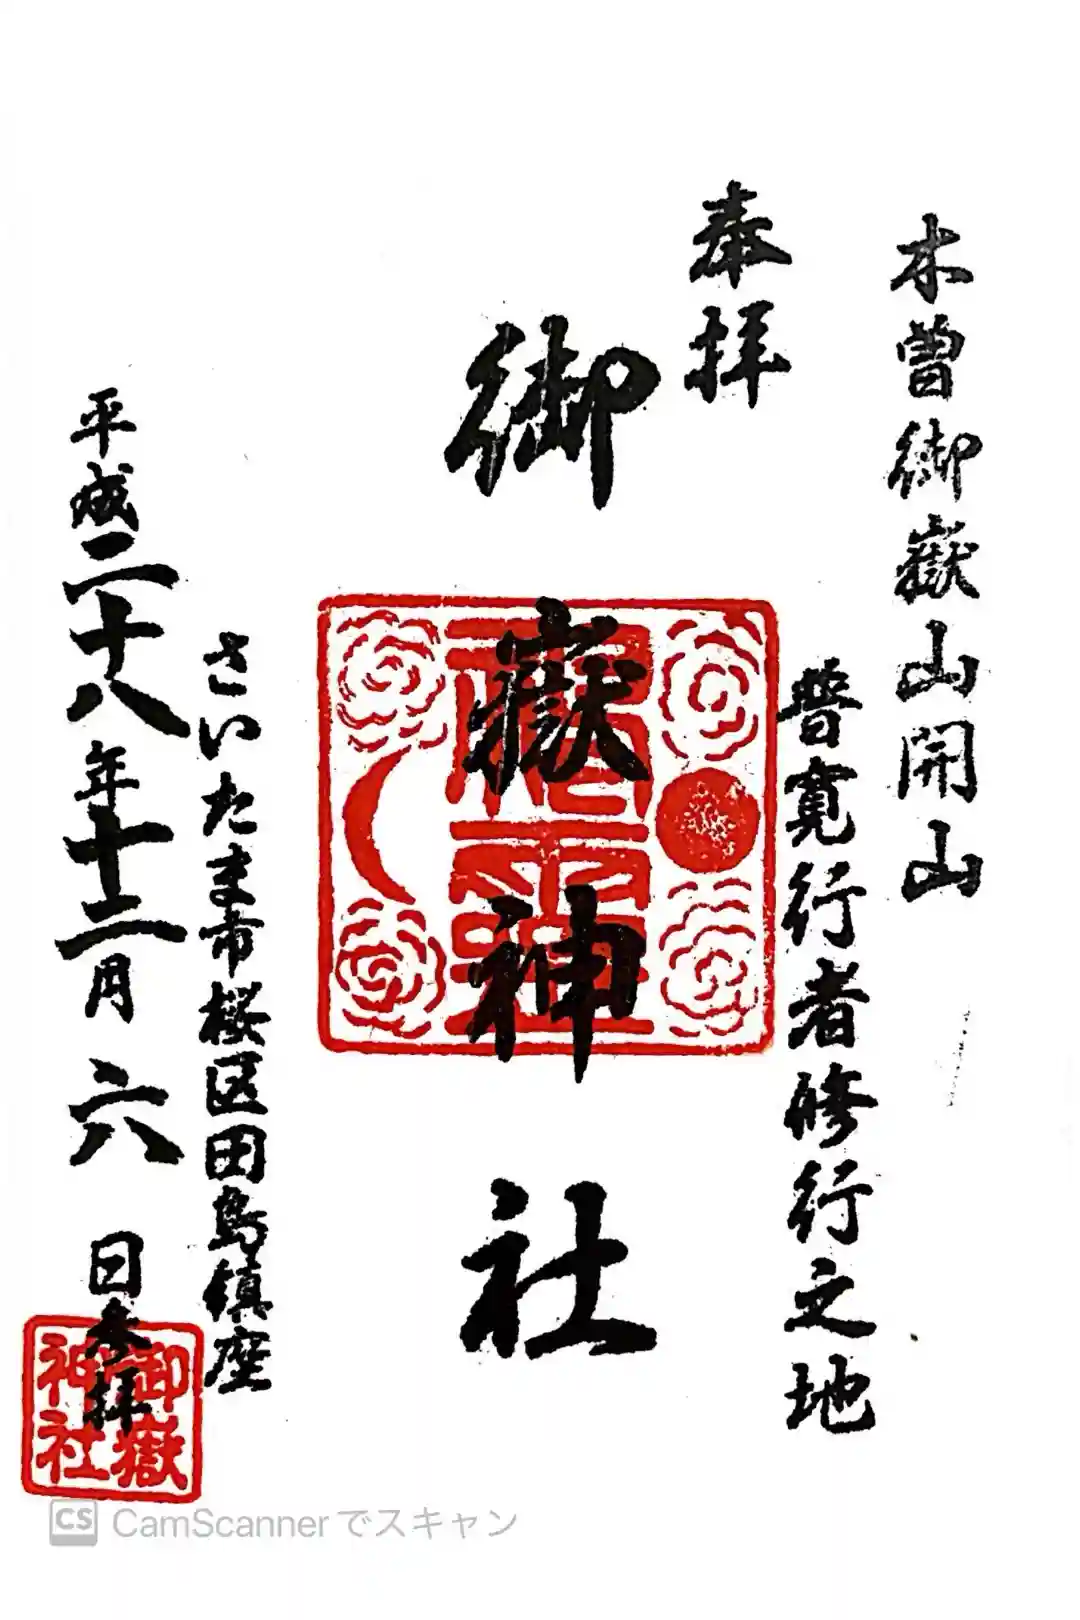 木曽御嶽山開山
普寛行者修行之地
奉拝
御嶽神社
さいたま市桜区田島鎮座
平成二十八年十二月六日参拝
御嶽
神社
CS CamScannerでスキャン